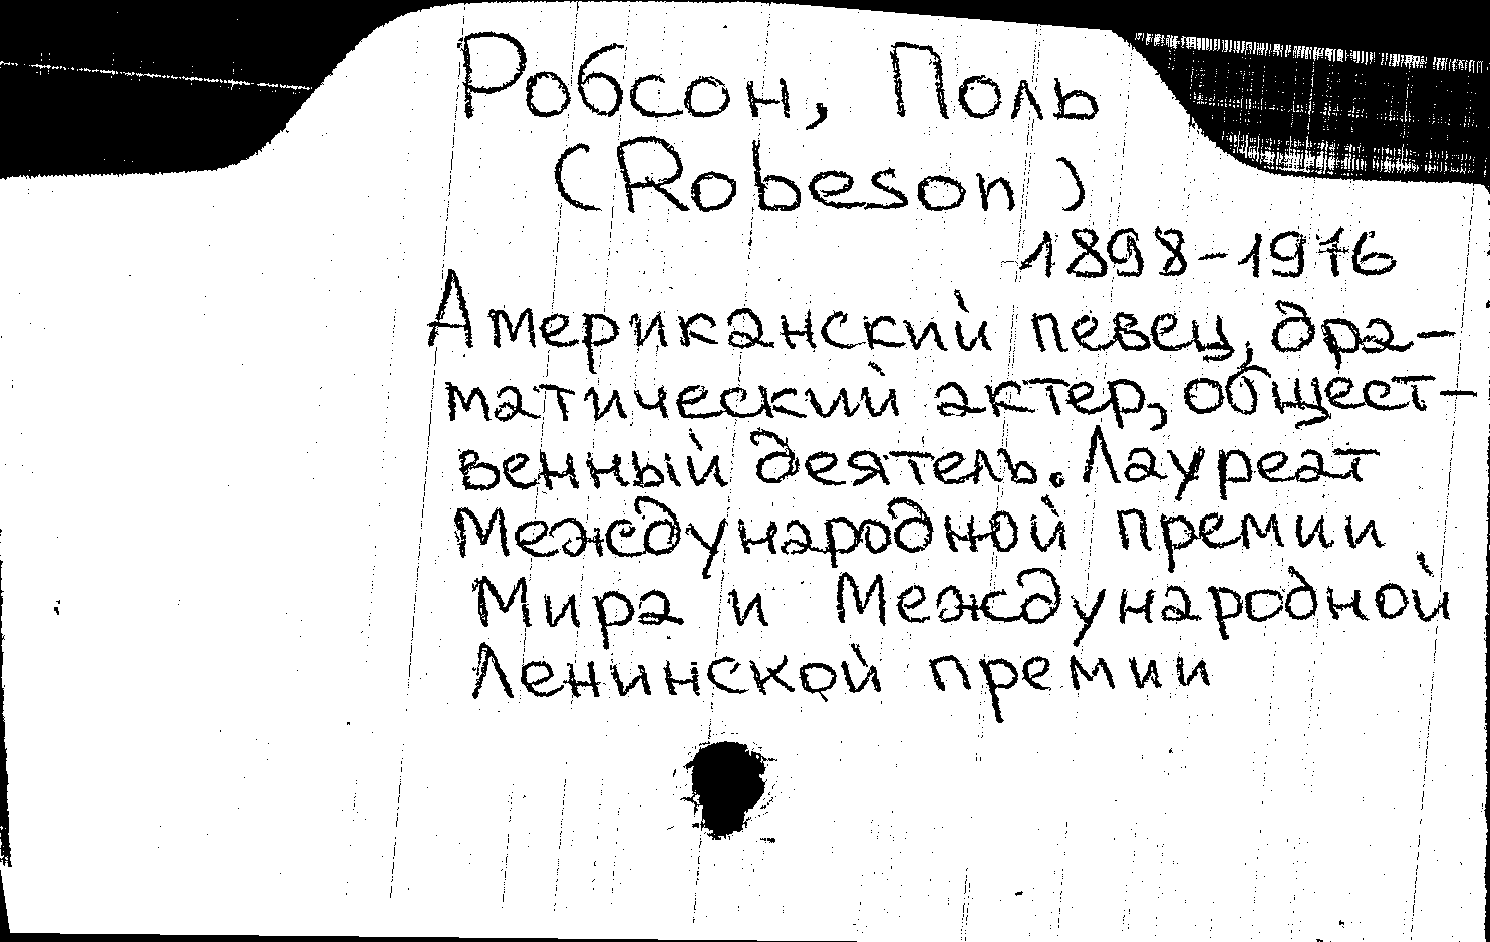 Робсон, Поль
(Robeson)
1898-1976
Американский певец, дра-
матический актер, общест-
венный деятель. Лауреат
Международной премии
Мира и Международной
Ленинской премии